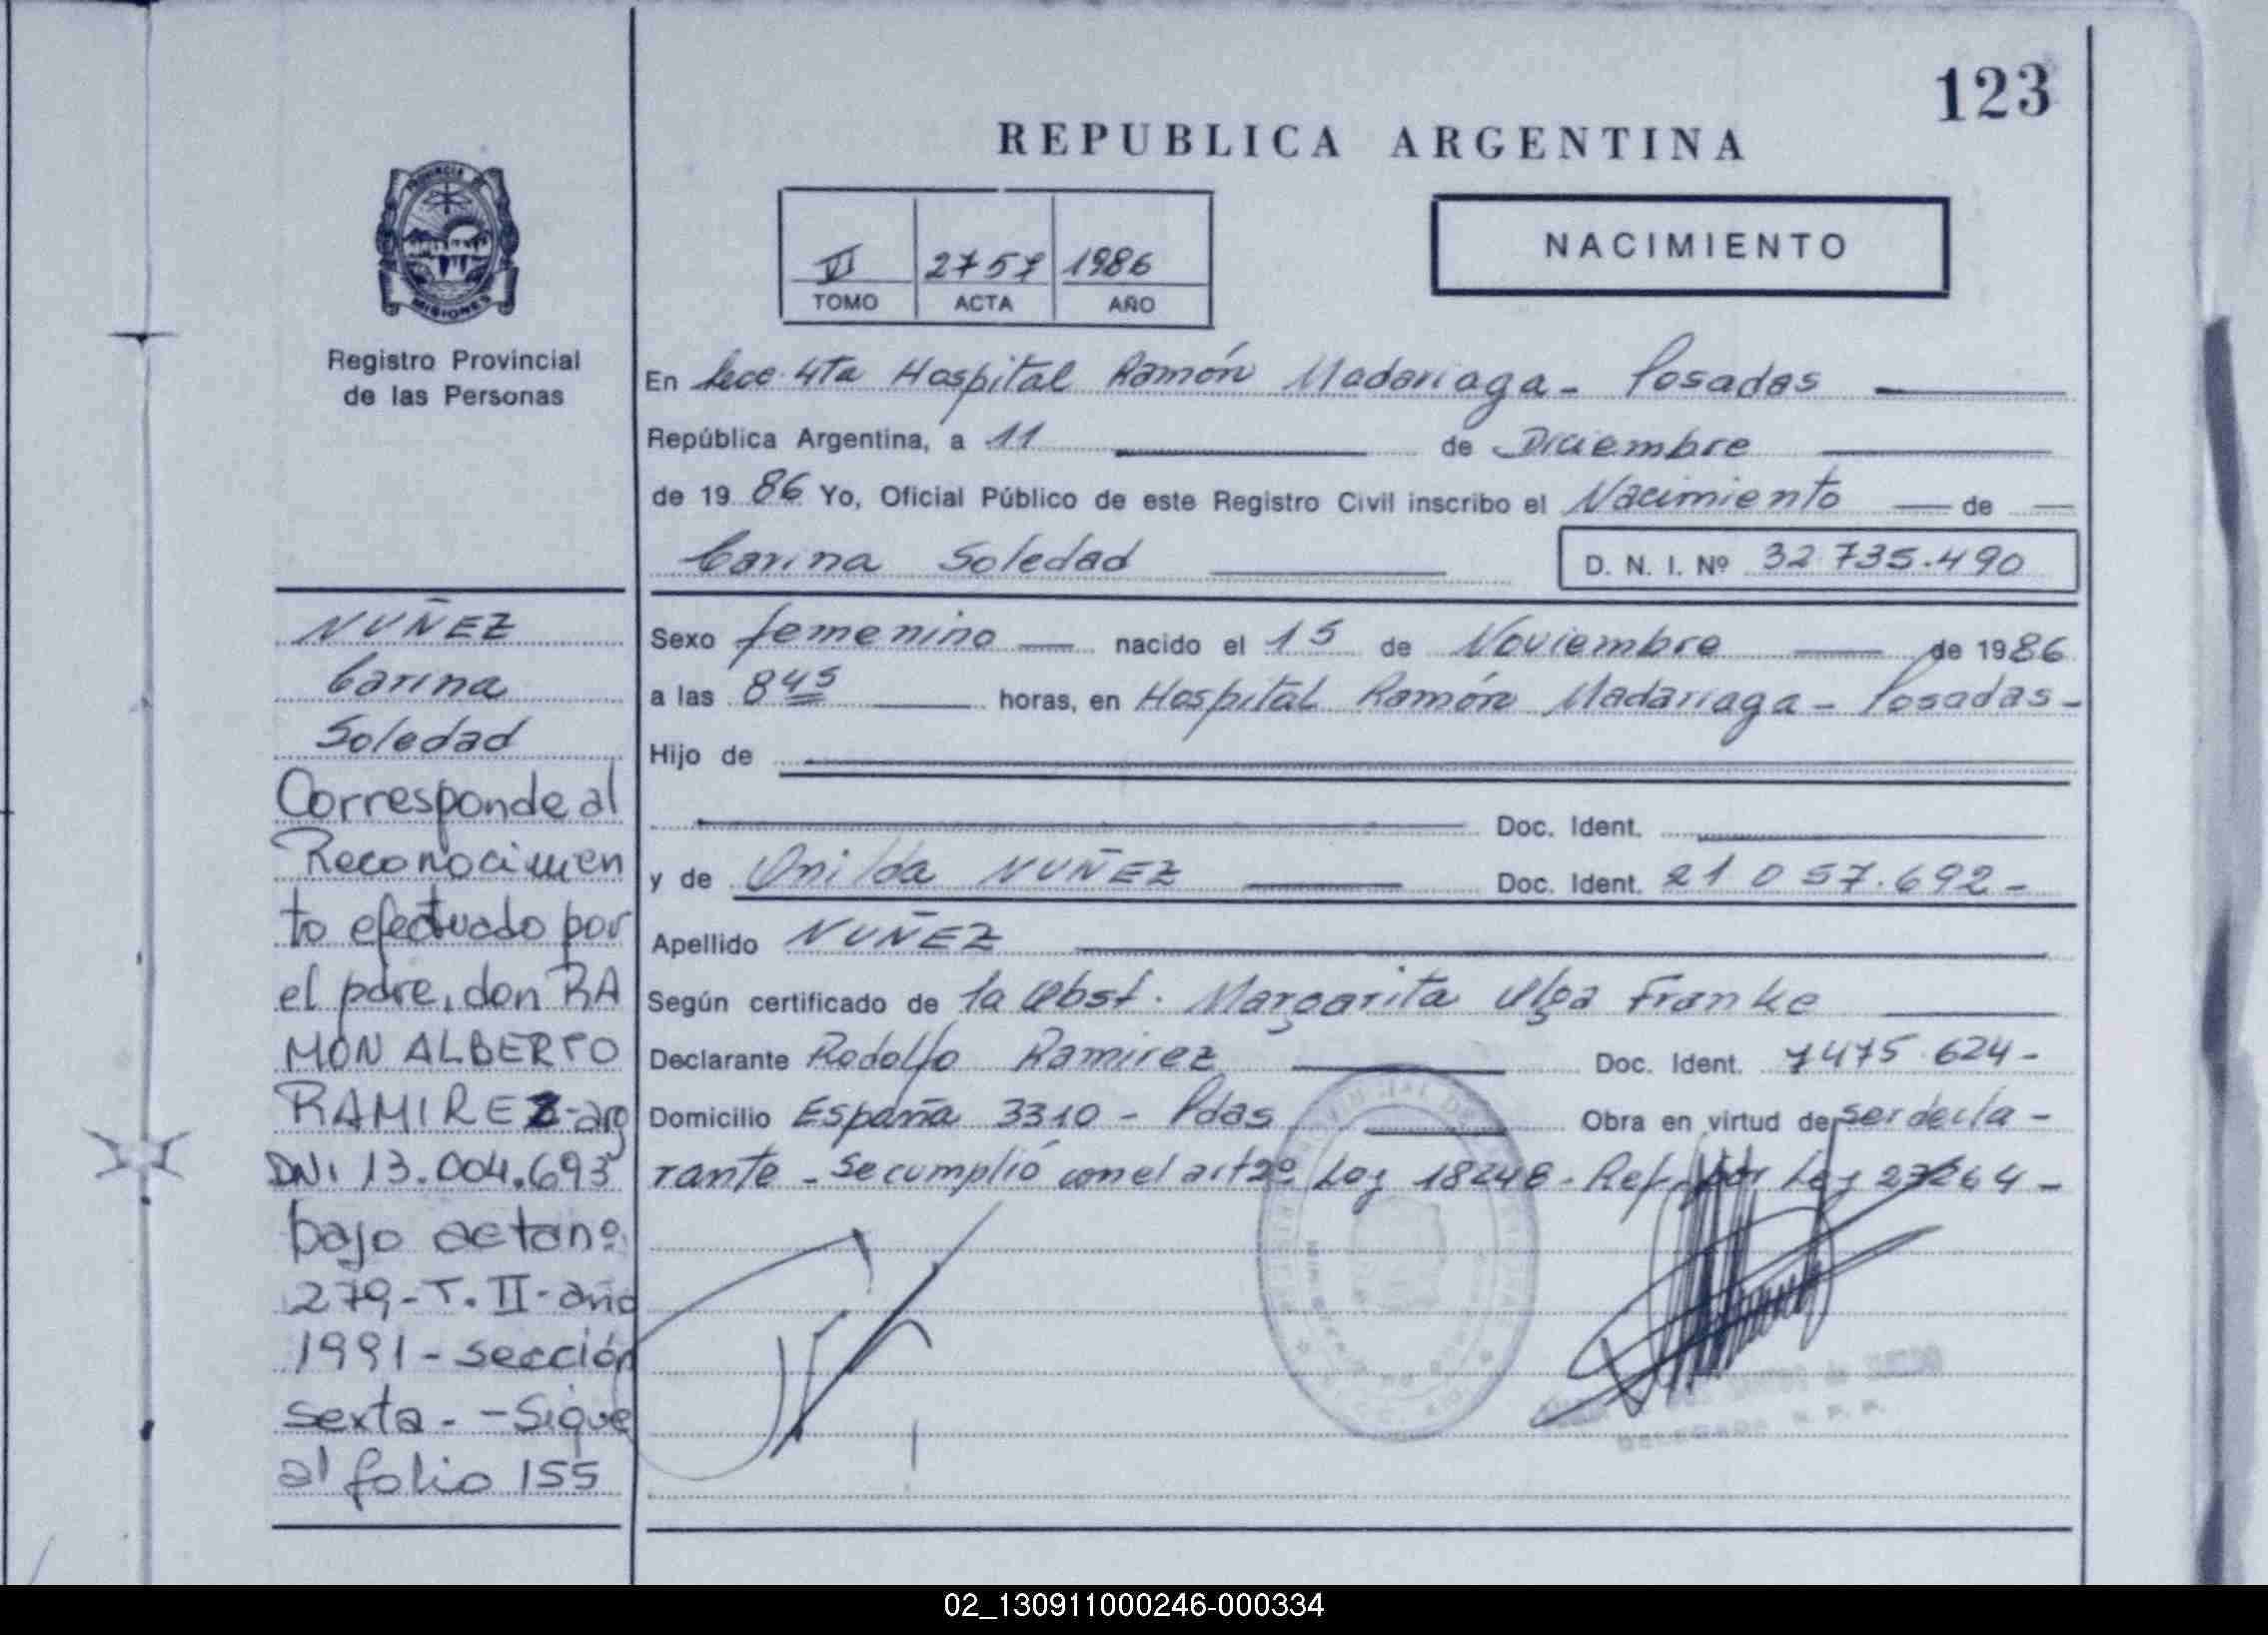 123
REPUBLICA ARGENTINA
PROVINCIA DE
MISIONES
Registro Provincial
de las Personas
VI 2757 1986
TOMO ACTA AÑO
NACIMIENTO
En Secc. 4ta Hospital Ramón Madariaga - Posadas
República Argentina, a 11 de Diciembre
de 19 86 Yo, Oficial Público de este Registro Civil inscribo el Nacimiento de
Carina Soledad D. N. I. Nº 32 735.490
Sexo femenino nacido el 15 de Noviembre de 1986
a las 8 45 horas, en Hospital Ramón Madariaga - Posadas -
Hijo de
Doc. Ident.
y de Onilda NUÑEZ Doc. Ident. 21 057.692 -
Apellido NUÑEZ
Según certificado de la Obst. Margarita Olga Franke
Declarante Rodolfo Ramirez Doc. Ident. 7475.624 -
Domicilio España 3310 - Pdas Obra en virtud de ser decla -
rante - Se cumplió con el art 2º Ley 18248 - Ref. por Ley 23264 -
NUÑEZ
Carina
Soledad
Corresponde al
Reconocimien
to efectuado por
el pdre, don RA
MON ALBERTO
RAMIREZ - arg
DNI 13.004.693
bajo acta nº
279 - T. II - año
1991 - sección
sexta. - Sigue
al folio 155
02_130911000246-000334